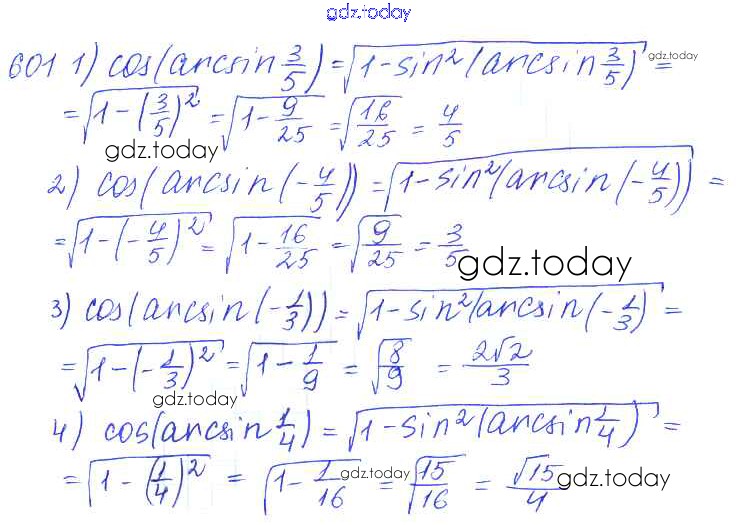 gdz.today
601 1) cos(arcsin 3/5) = √(1 - sin²(arcsin 3/5)) = gdz.today
= √(1 - (3/5)²) = √(1 - 9/25) = √(16/25) = 4/5
gdz.today
2) cos(arcsin(-4/5)) = √(1 - sin²(arcsin(-4/5))) =
= √(1 - (-4/5)²) = √(1 - 16/25) = √(9/25) = 3/5
gdz.today
3) cos(arcsin(-1/3)) = √(1 - sin²(arcsin(-1/3)) =
= √(1 - (-1/3)²) = √(1 - 1/9) = √(8/9) = 2√2/3
gdz.today
4) cos(arcsin 1/4) = √(1 - sin²(arcsin 1/4)) =
= √(1 - (1/4)²) = √(1 - 1/16) = √15/√16 = √15/4
gdz.today
gdz.today